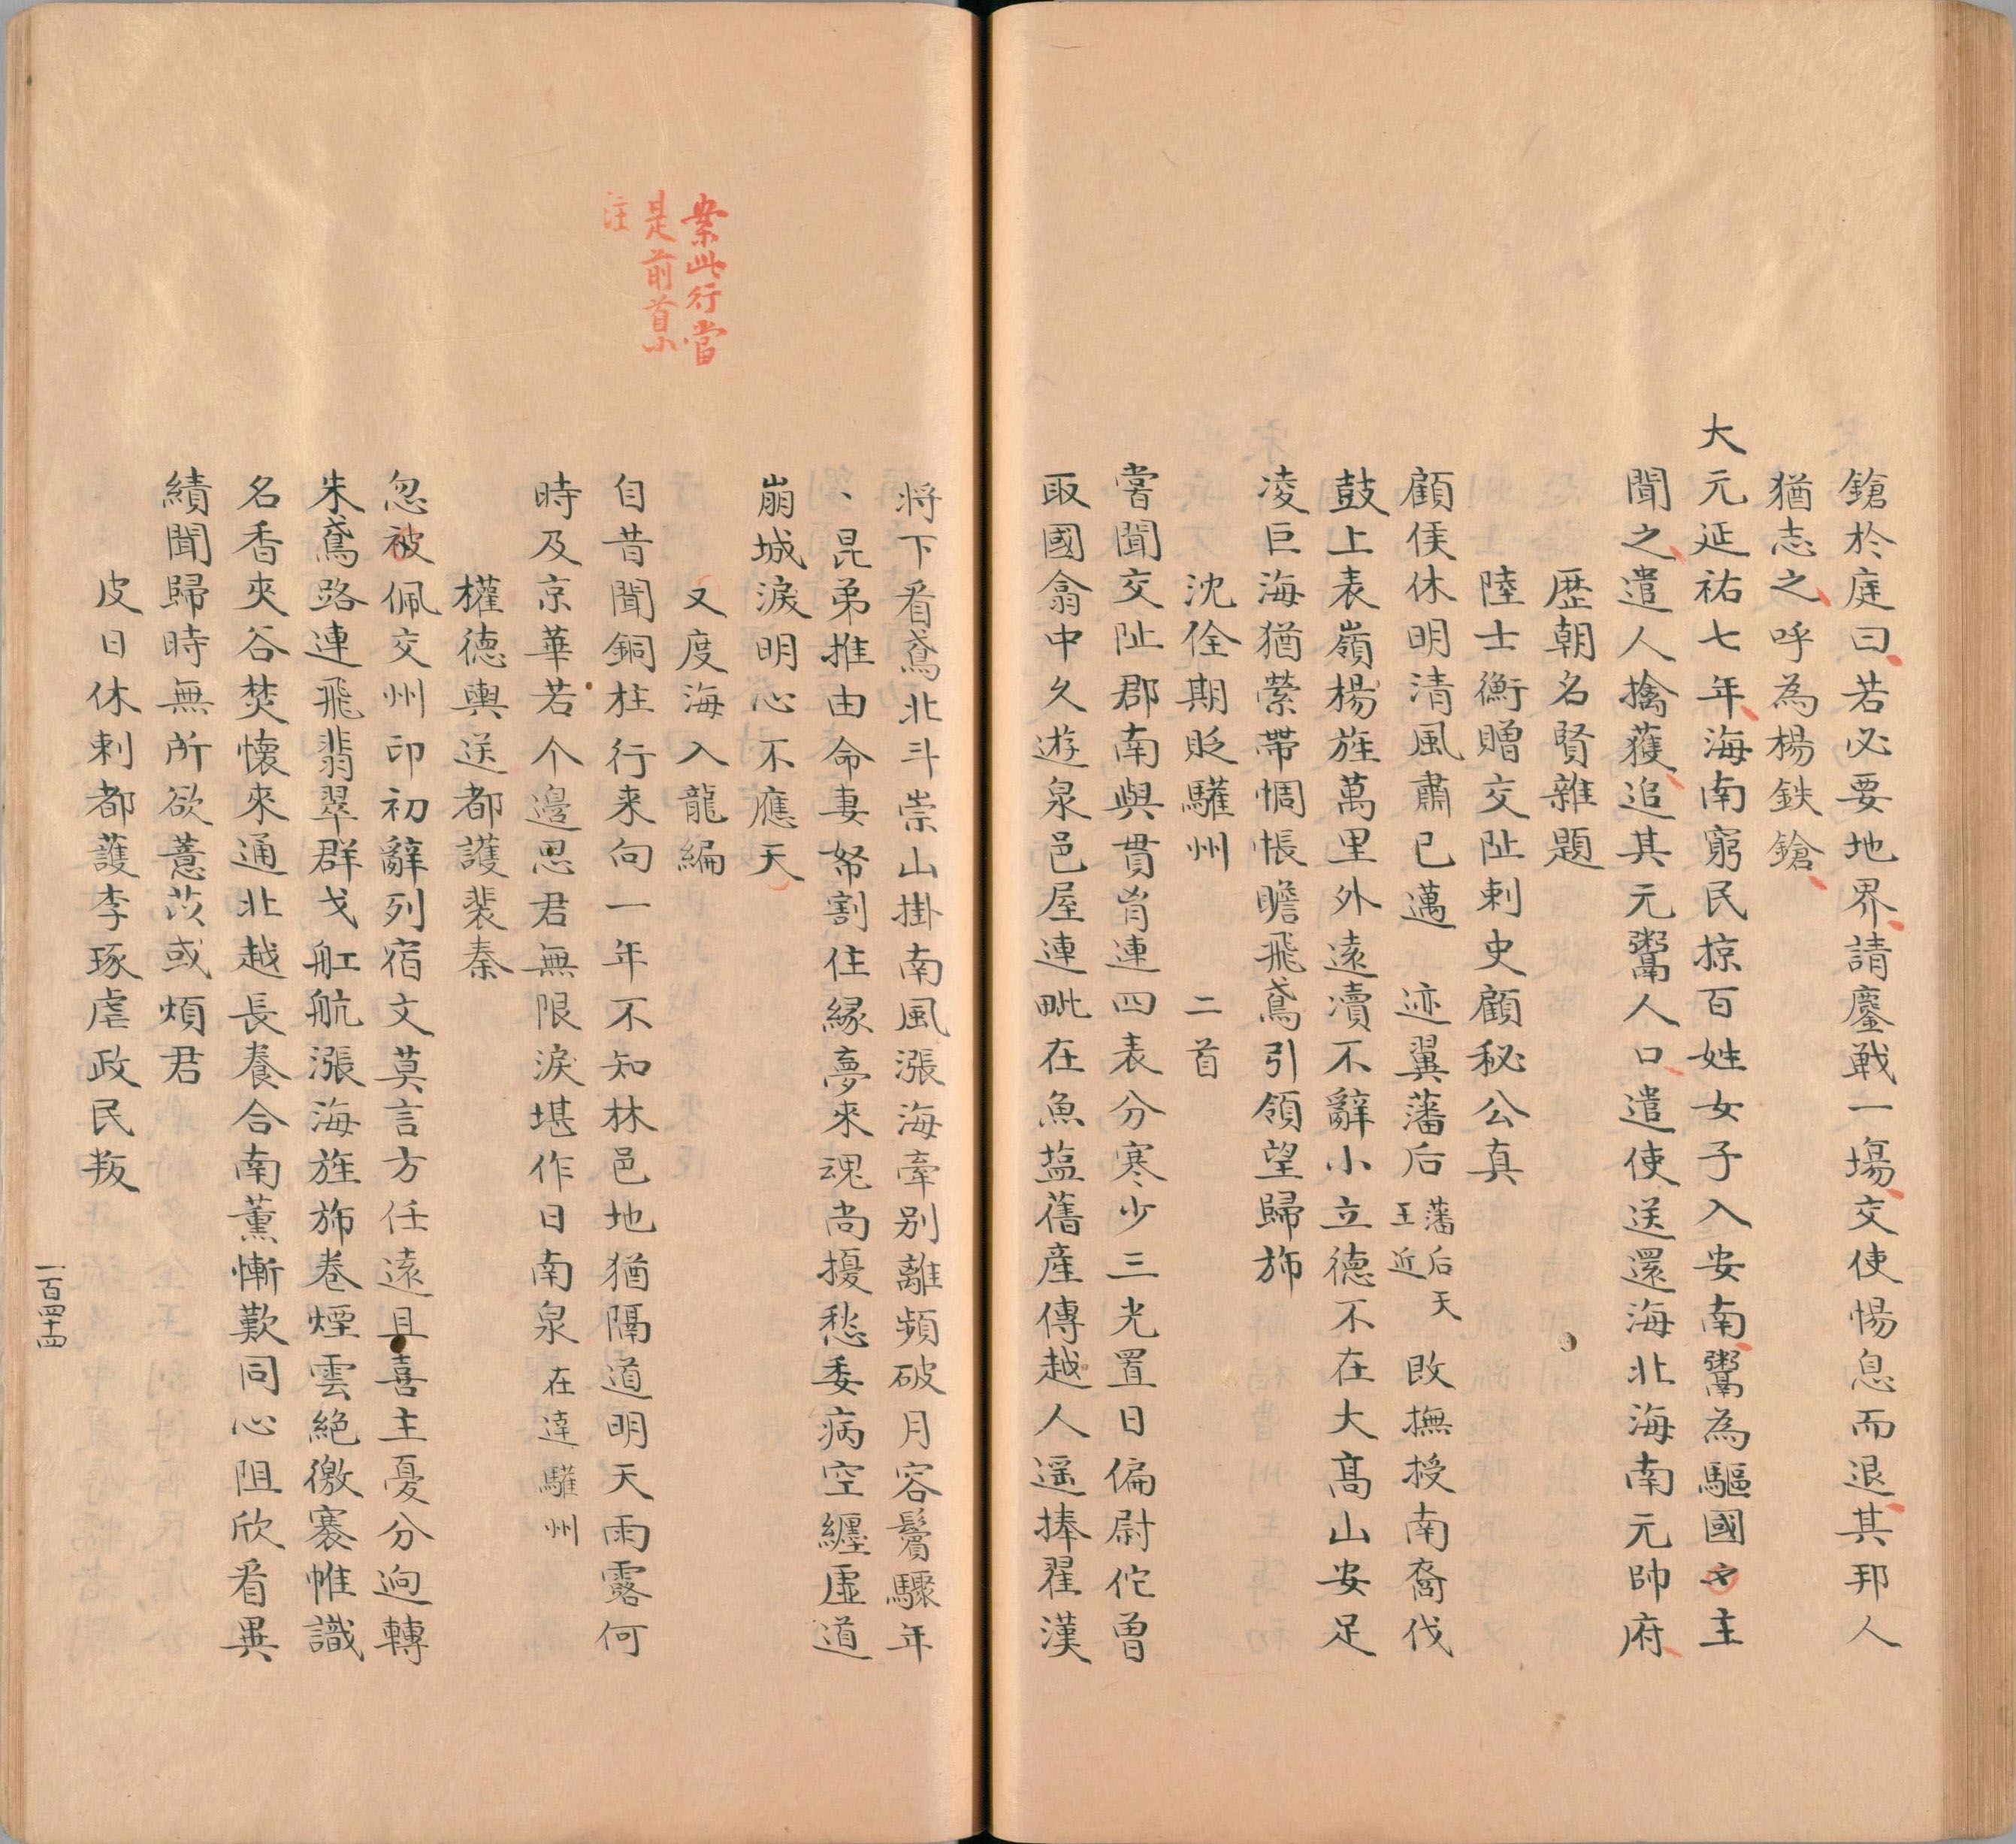 鎗於庭曰若必要地界請鏖戰一塲交使惕息而退其邦人
猶志之呼為楊鉄鎗
大元延祐七年海南窮民掠百姓女子入安南鬻為驅國主
聞之遣人擒獲追其元鬻人口遣使送還海北海南元帥府
歴朝名賢雜題
陸士衡贈交阯刺史顧秘公真
顧侯休明清風肅已邁 迹翼藩后 藩后天王近 改撫授南裔伐
鼓上表嶺楊旌萬里外遠瀆不辭小立德不在大髙山安足
凌巨海猶縈帶惆悵瞻飛鳶引領望歸斾
沈佺期貶驩州 二首
嘗聞交阯郡南與貫胷連四表分寒少三光置日偏尉佗曾
馭國翕中久遊泉邑屋連毗在魚塩舊產傳越人遥捧翟漢
将下看鳶北斗崇山掛南風漲海牽別離頻破月容鬢驟年
、昆弟推由命妻帑割住縁夢來魂尚擾愁委病空纏虛道
崩城淚明心不應天
又度海入龍編
案此行當
是前首小
注
自昔聞銅柱行来向一年不知林邑地猶隔道明天雨露何
時及京華若个邊思君無限淚堪作日南泉 在逹驩州
權德輿送都護裴泰
忽被佩交州印初辭列宿文莫言方任遠且喜主憂分逈轉
朱鳶路連飛翡翠群戈舡航漲海旌斾巻煙雲絕徼褰帷識
名香夾谷焚懷來通北越長養合南薰慚歎同心阻欣看異
績聞歸時無所欲薏苡或煩君
皮日休刺都護李琢虐政民叛
一百四十四